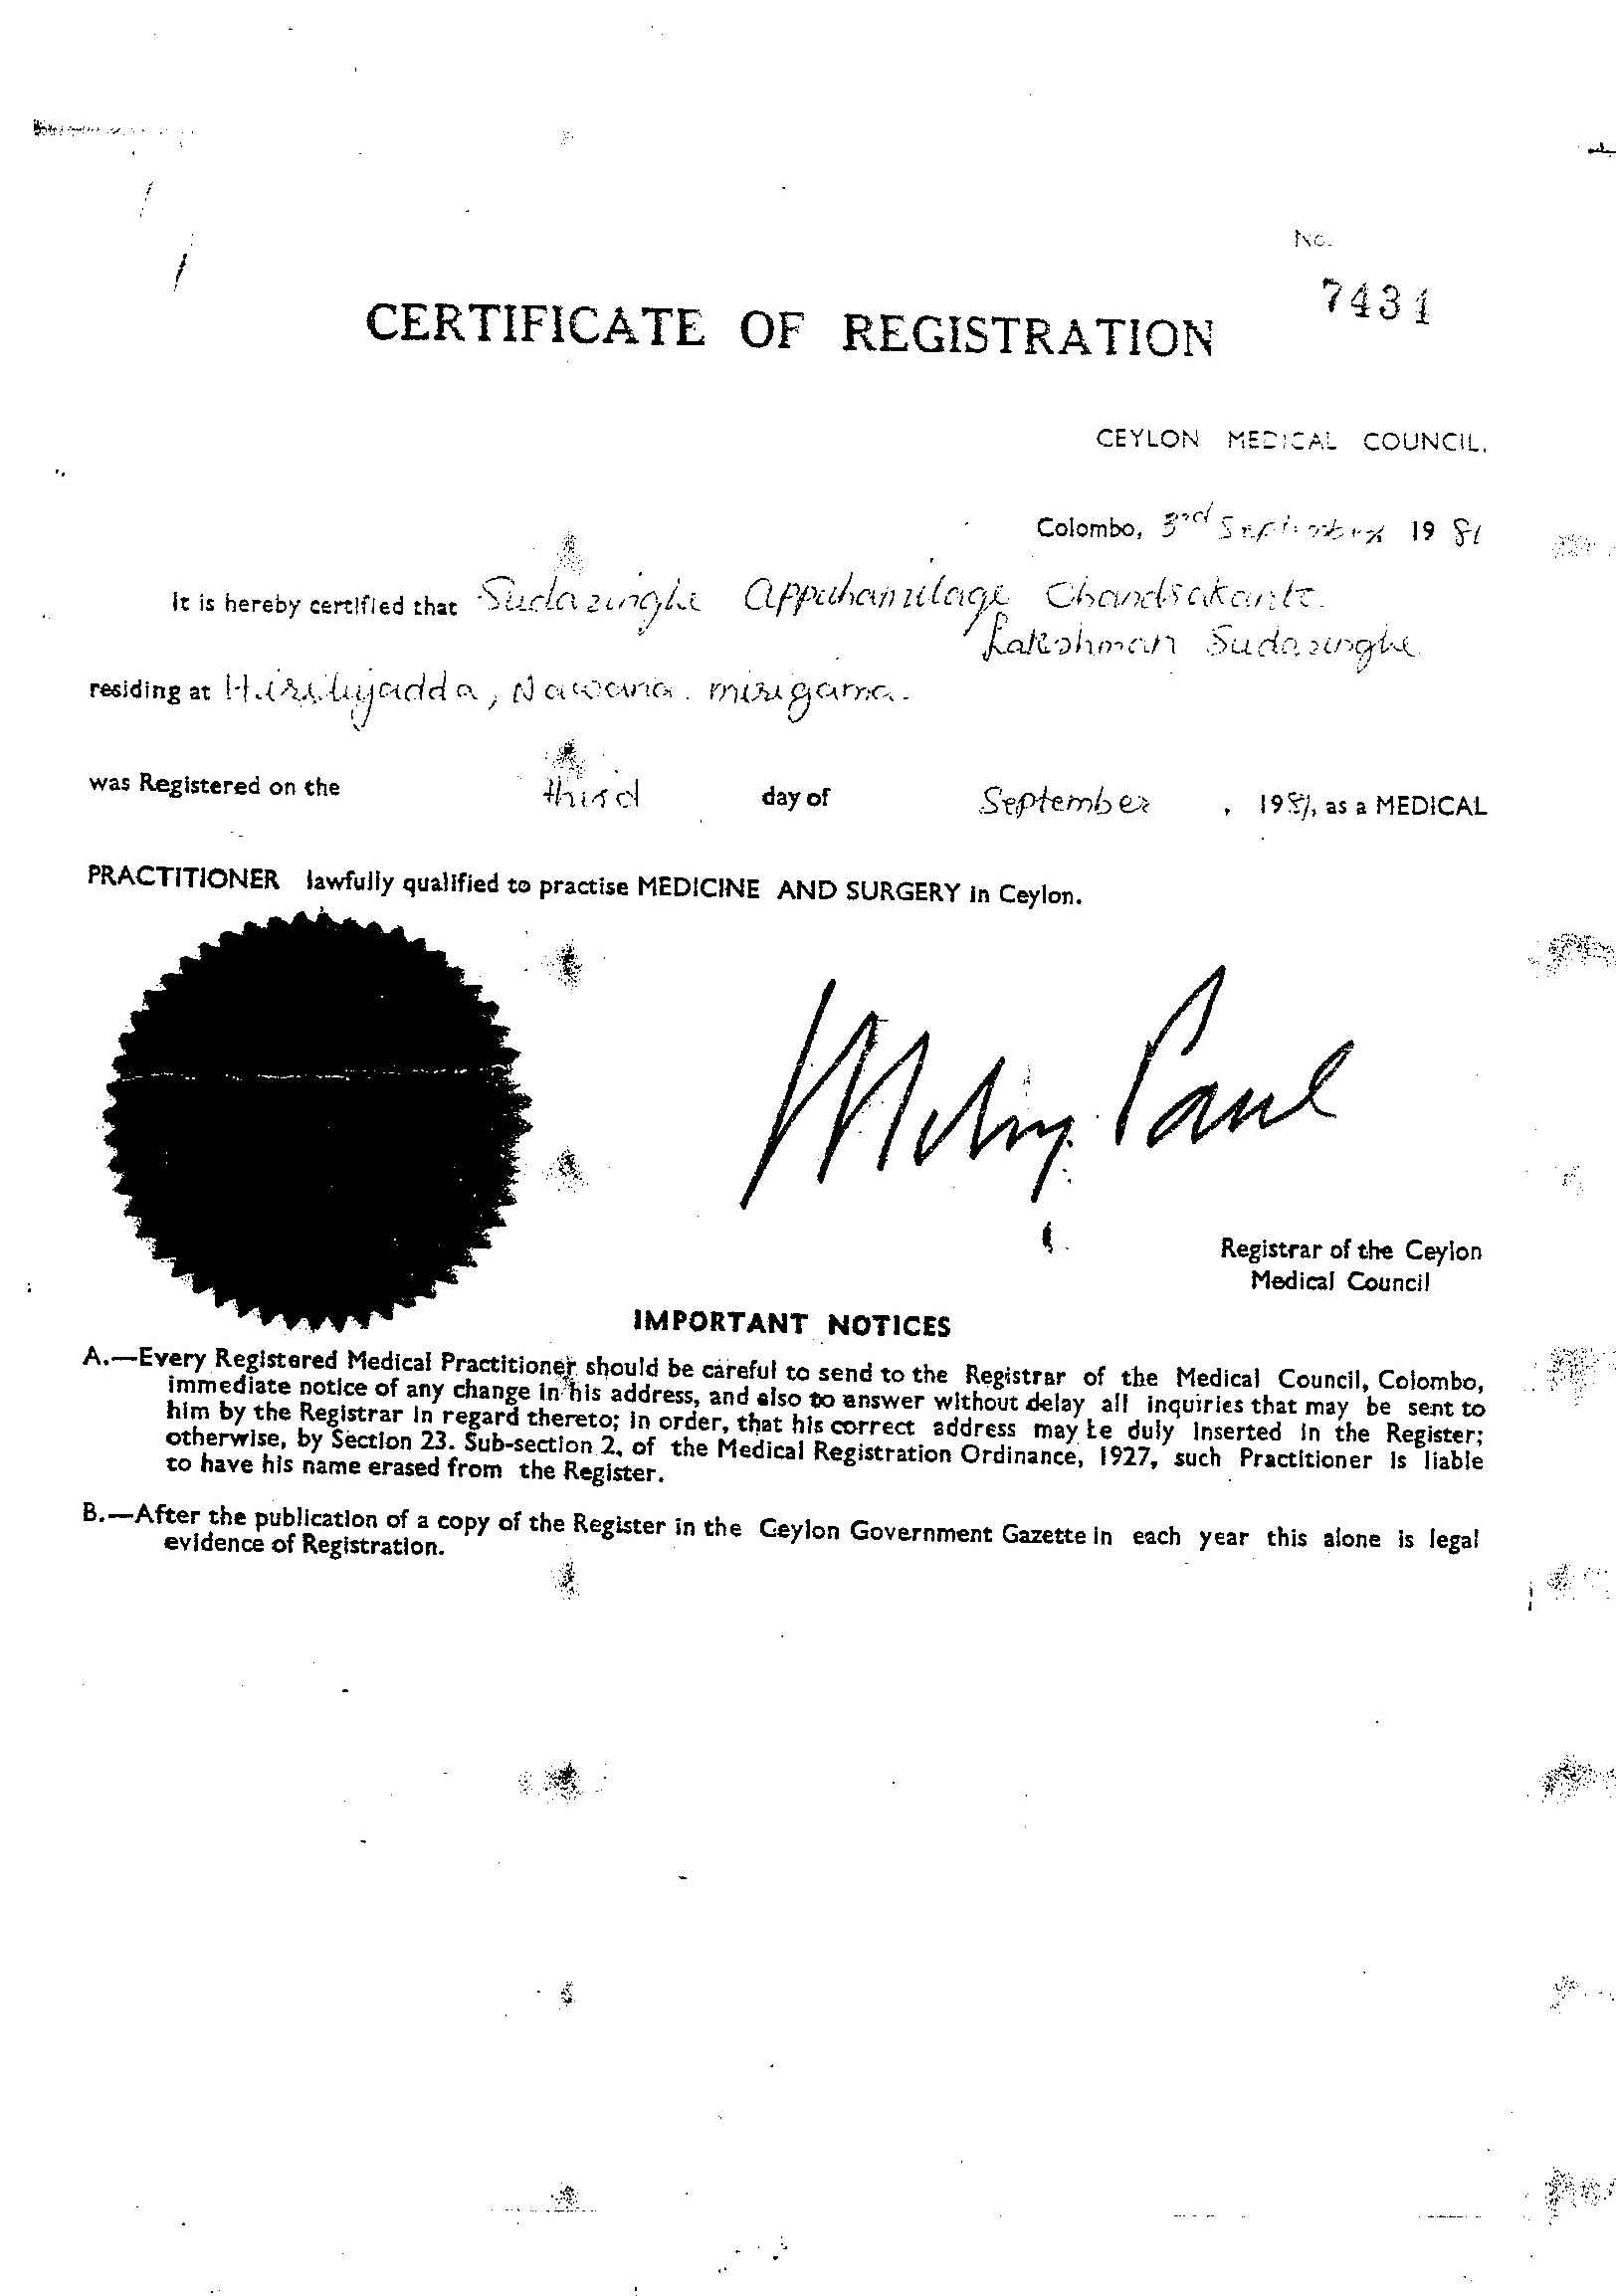 No.
7431
CERTIFICATE OF REGISTRATION
CEYLON MEDICAL COUNCIL.
Colombo, 3rd September 1981
It is hereby certified that Sudasinghe Appuhamilage Chandrakante
Lakshman Sudasinghe
residing at Nawana. Mirigama.
was Registered on the third day of September, 1981, as a MEDICAL
PRACTITIONER lawfully qualified to practise MEDICINE AND SURGERY in Ceylon.
Registrar of the Ceylon
Medical Council
IMPORTANT NOTICES
A.—Every Registered Medical Practitioner should be careful to send to the Registrar of the Medical Council, Colombo,
immediate notice of any change in his address, and also to answer without delay all inquiries that may be sent to
him by the Registrar in regard thereto; in order, that his correct address may be duly inserted in the Register;
otherwise, by Section 23. Sub-section 2, of the Medical Registration Ordinance, 1927, such Practitioner is liable
to have his name erased from the Register.
B.—After the publication of a copy of the Register in the Ceylon Government Gazette in each year this alone is legal
evidence of Registration.